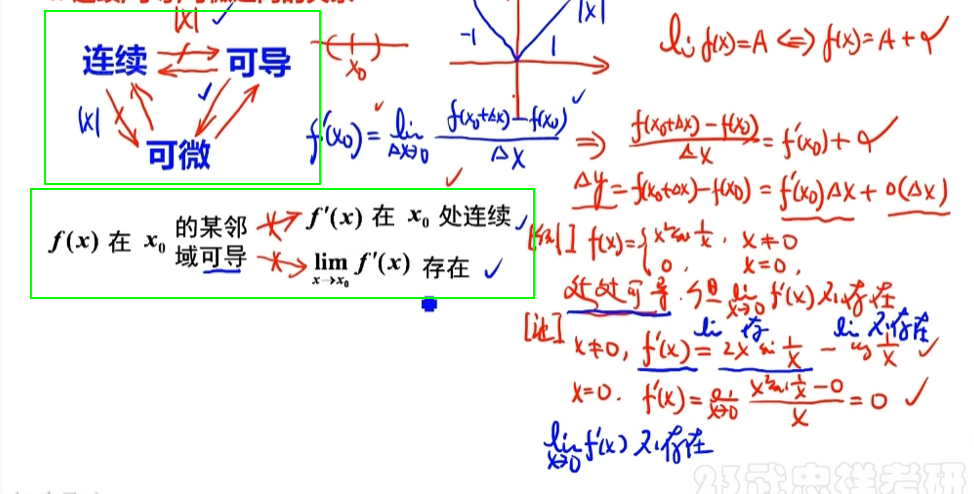 |x| ✓
连续 可导
|x|
可微
x₀
-1 1 |x|
lim f(x)=A ⟺ f(x)=A+α
f'(x₀) = lim Δx→0 (f(x₀+Δx)-f(x₀))/Δx ⇒ (f(x₀+Δx)-f(x₀))/Δx = f'(x₀)+α
Δy = f(x₀+Δx)-f(x₀) = f'(x₀)Δx + o(Δx)
f(x) 在 x₀ 的某邻域可导
f'(x) 在 x₀ 处连续 ✓
lim x→x₀ f'(x) 存在 ✓
[例] f(x)={x² sin 1/x, x≠0
0, x=0,
处处可导, 但 lim x→0 f'(x) 不存在
lim 存 lim 不存在
[证] x≠0, f'(x) = 2x sin 1/x - cos 1/x ✓
x=0. f'(x) = lim x→0 (x² sin 1/x - 0)/x = 0 ✓
lim x→0 f'(x) 不存在
23武忠祥考研